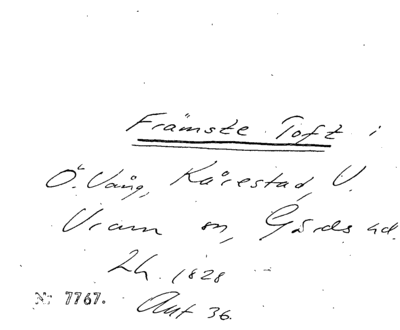 Främste Toft i
Ö. Vång, Kårestad, V.
Vram sn, Gärds hd.
Lh. 1828
Nr 7767.
Ant 36.